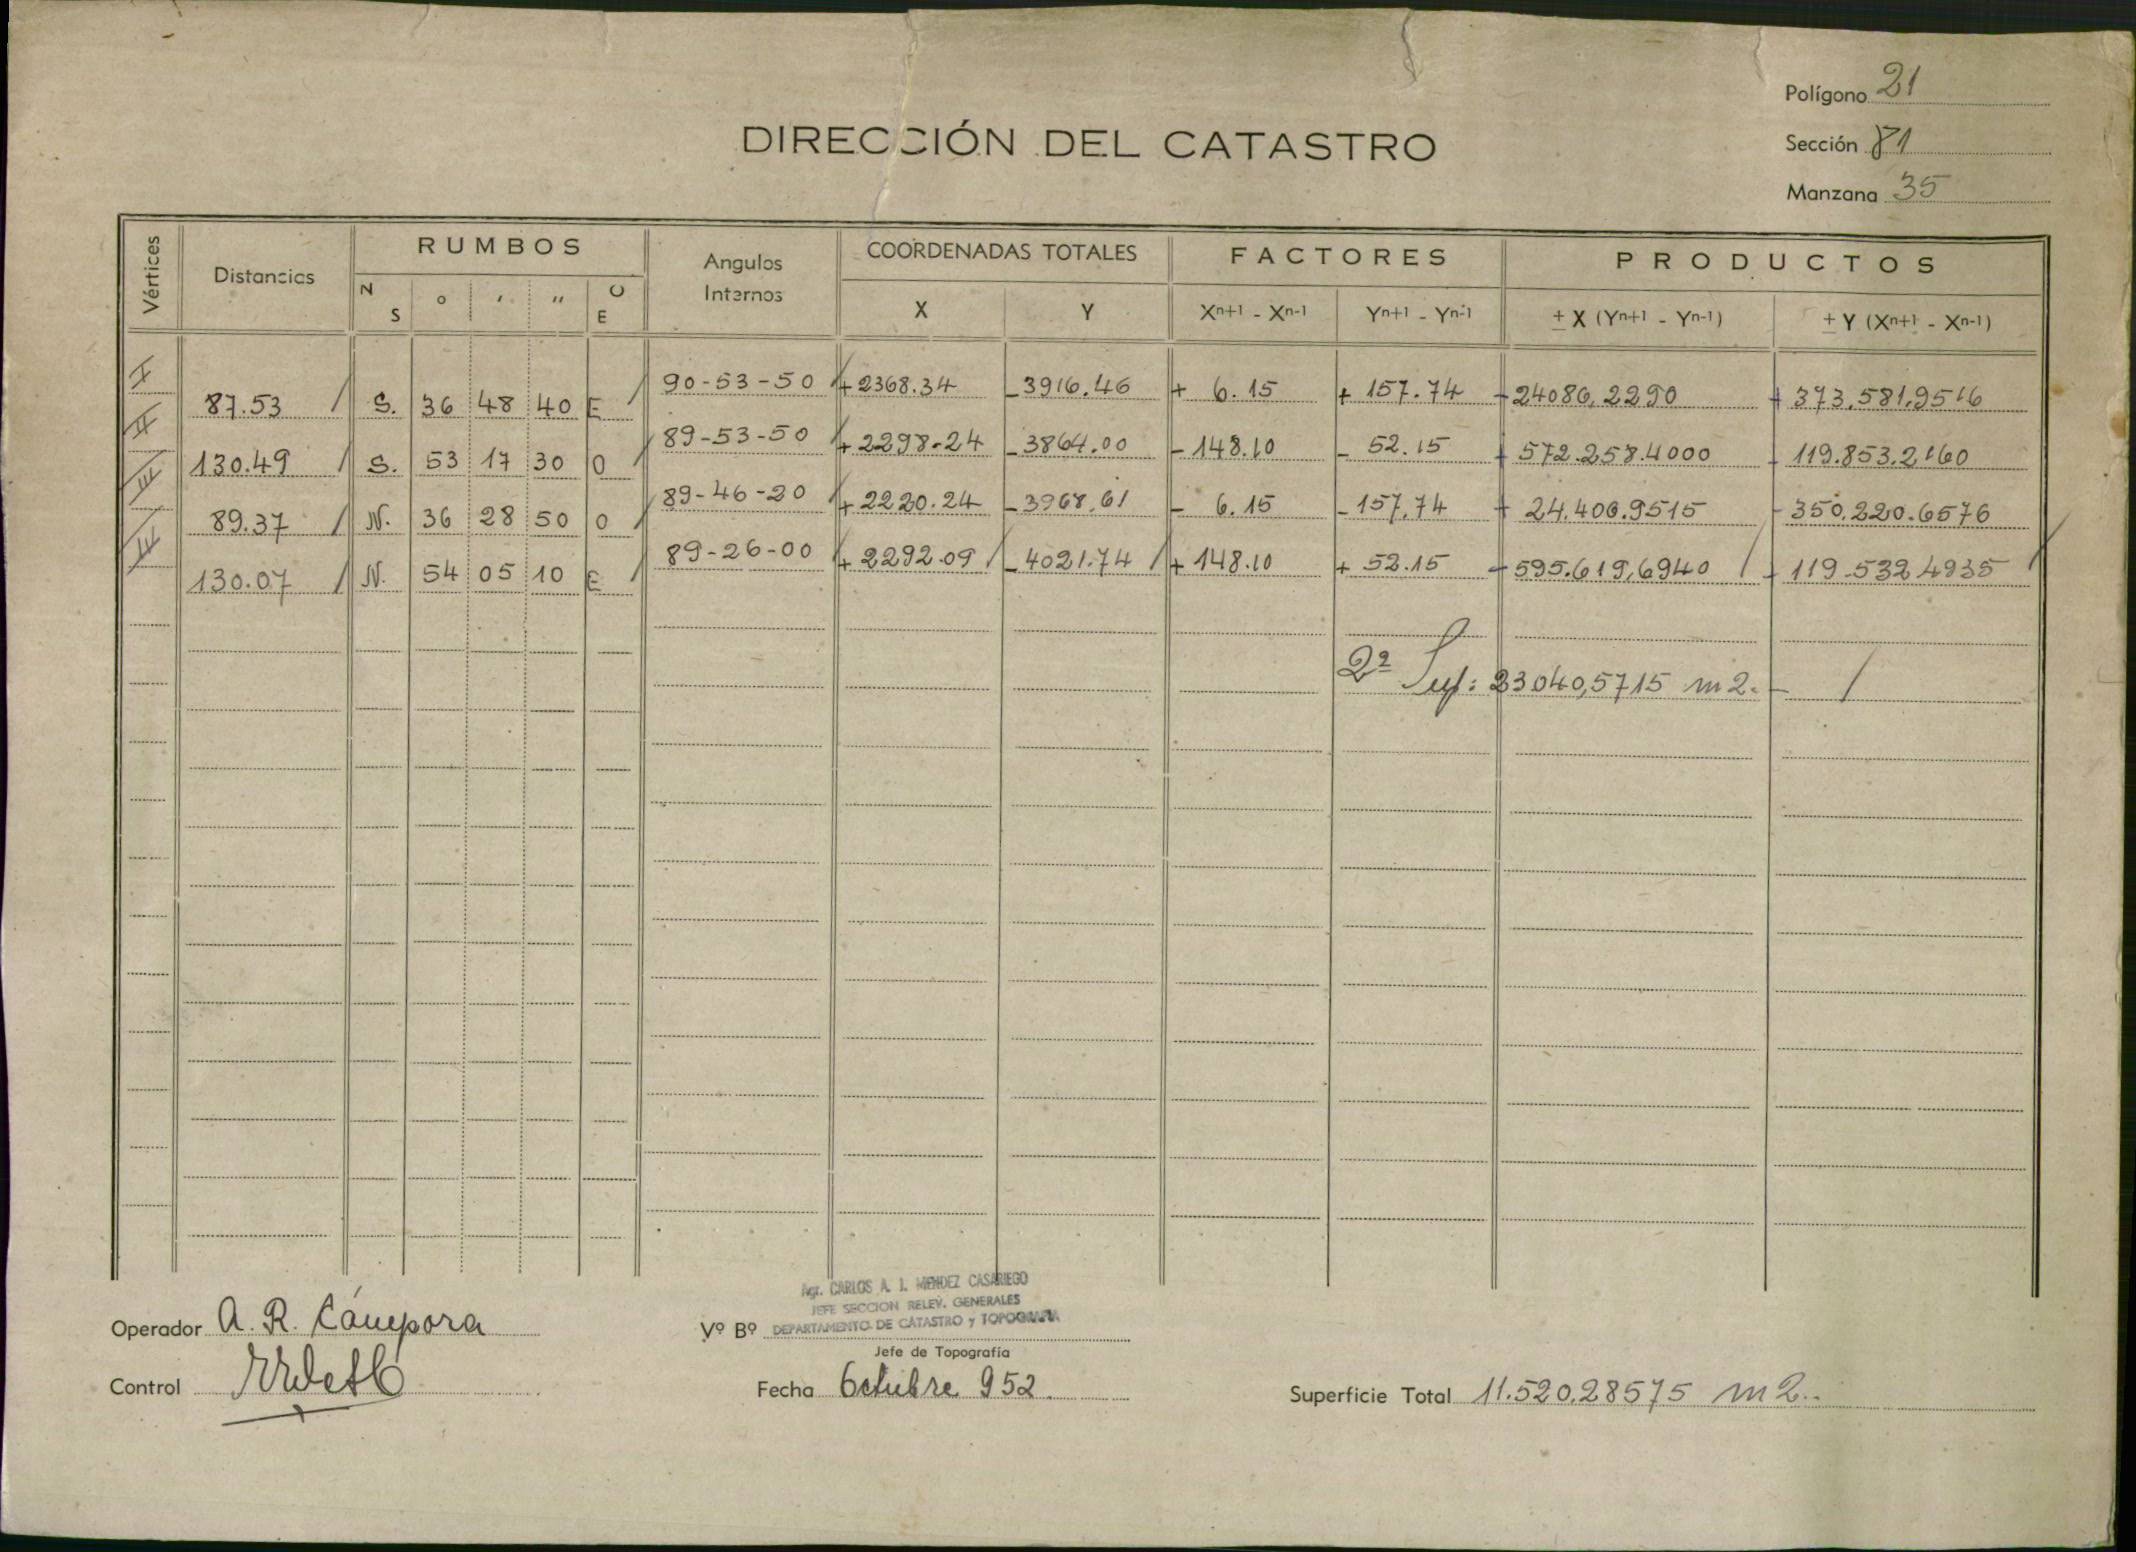 Polígono 21
DIRECCIÓN DEL CATASTRO
Sección 81
Manzana 35
Vértices Distancias RUMBOS Angulos Internos COORDENADAS TOTALES FACTORES PRODUCTOS
N S ° ' " O E X Y Xn+1 - Xn-1 Yn+1 - Yn-1 ± X (Yn+1 - Yn-1) ± Y (Xn+1 - Xn-1)
I 90-53-50 +2368.34 -3916.46 + 6.15 + 157.74 -24086,2290 + 373.581,9516
87.53 / S. 36 48 40 E /
II 89-53-50 +2298.24 -3864.00 -148.10 - 52.15 + 572.258.4000 - 119.853.2160
130.49 / S. 53 17 30 O /
III 89-46-20 +2220.24 -3968.61 - 6.15 -157.74 + 24.406.9515 - 350.220.6576
89.37 / N. 36 28 50 O /
IV 89-26-00 +2292.09 / -4021.74 / +148.10 + 52.15 -595.619,6940 / + 119.532.4935 /
130.07 / N. 54 05 10 E /
2ª Sup: 23040,5715 m2.- /
Agr. CARLOS A. I. MENDEZ CASARIEGO
JEFE SECCION RELEV. GENERALES
DEPARTAMENTO DE CATASTRO y TOPOGRAFIA
Operador A. R. Cámpora
Vº Bº
Jefe de Topografía
Control
Fecha Octubre 952.
Superficie Total 11.520,28575 m2..